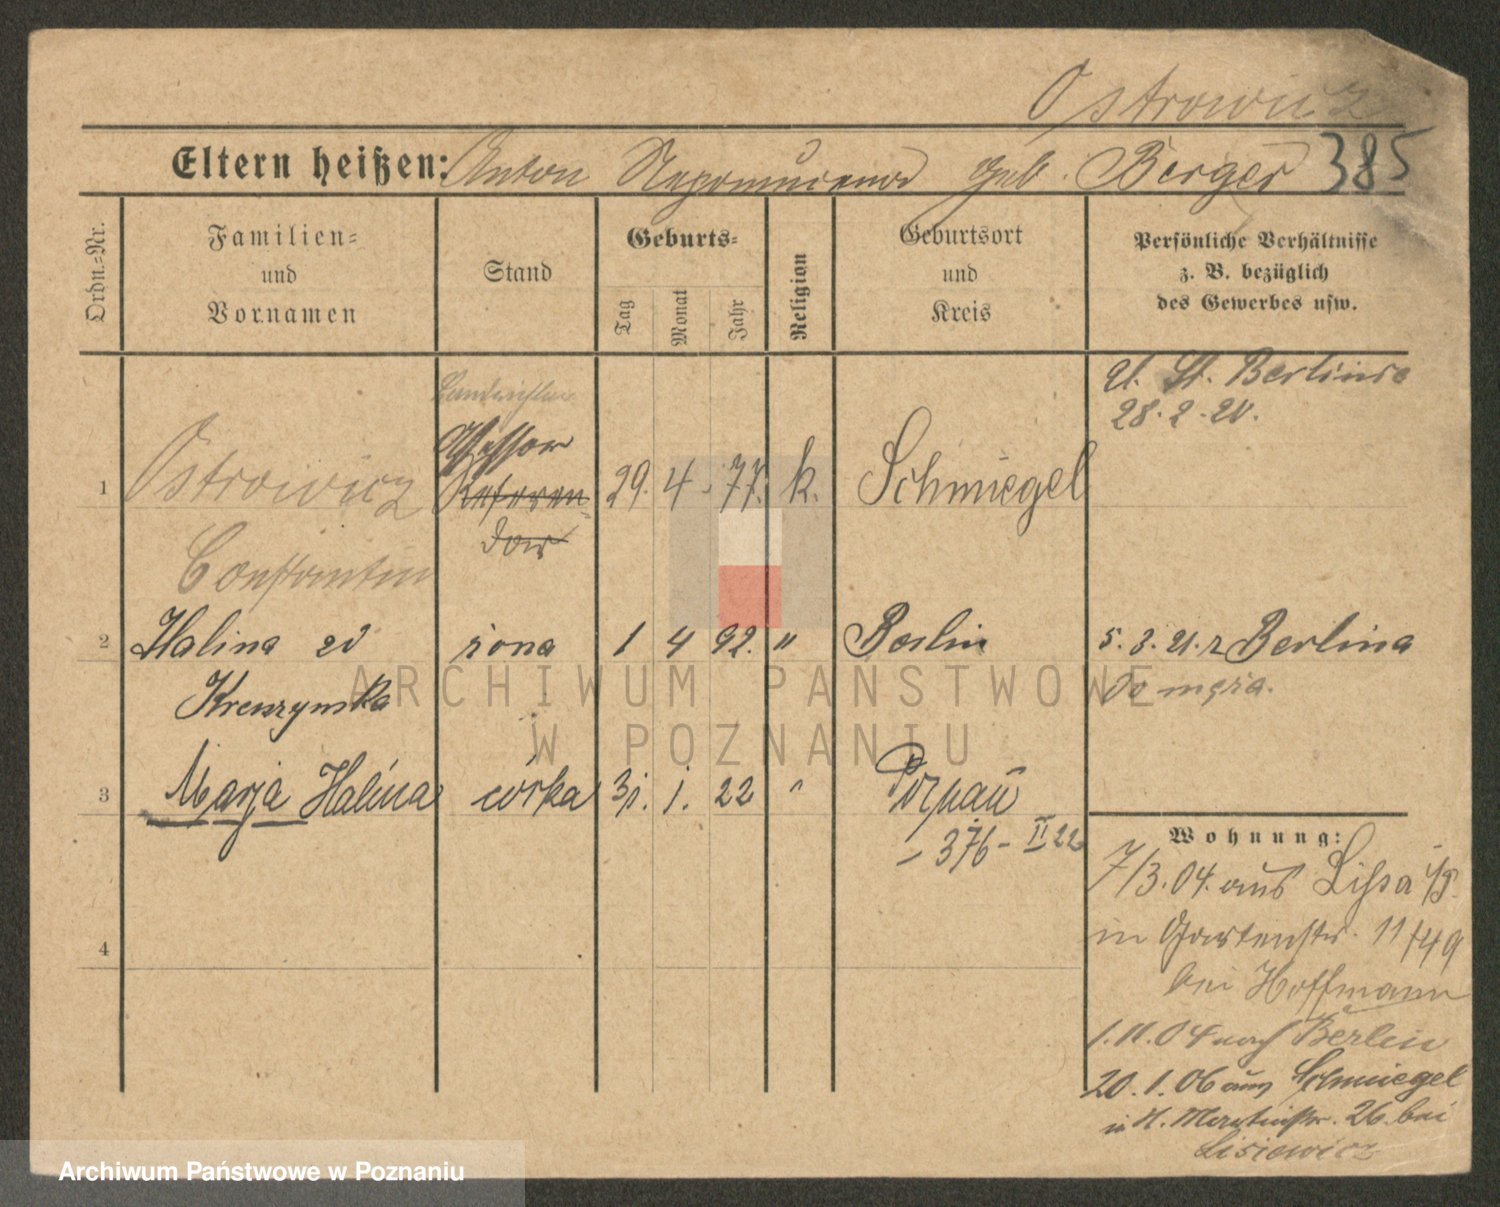 Ostrowicz
Eltern heißen: Anton Nepomucenus geb. Berger 385
Ordn.-Nr.
Familien-
und
Vornamen
Stand
Geburts-
Tag
Monat
Jahr
Religion
Geburtsort
und
Kreis
Persönliche Verhältnisse
z. B. bezüglich
des Gewerbes usw.
Berlinie
28. 2. 21.
Assessor
1 Ostrowicz Referen- 29. 4. 77. k. Schmiegel
dar
Constantin
2 Halina zd żona 1 4 92. " Berlin 5.3.21. z Berlina
do męża.
3 Marja Halina córka 31. 1. 22 " Poznań
- 376 - II 22
Wohnung:
7/3.04. aus Lissa i/P.
in Gartenstr. 11
4
bei Hoffmann
1.11.04 nach Berlin
20.1.06 aus Schmiegel
in St. Martinstr. 26. bei
Lisiewicz
ARCHIWUM PAŃSTWOWE
W POZNANIU
Archiwum Państwowe w Poznaniu